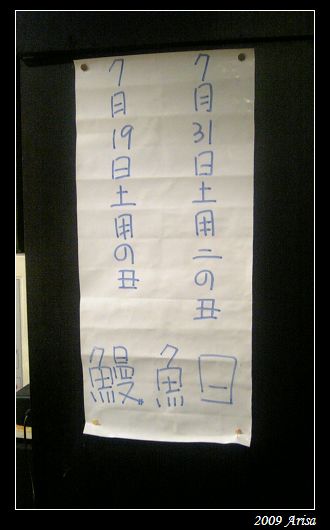 7月19日土用の丑
7月31日土用二の丑
鰻魚日
2009 Arisa